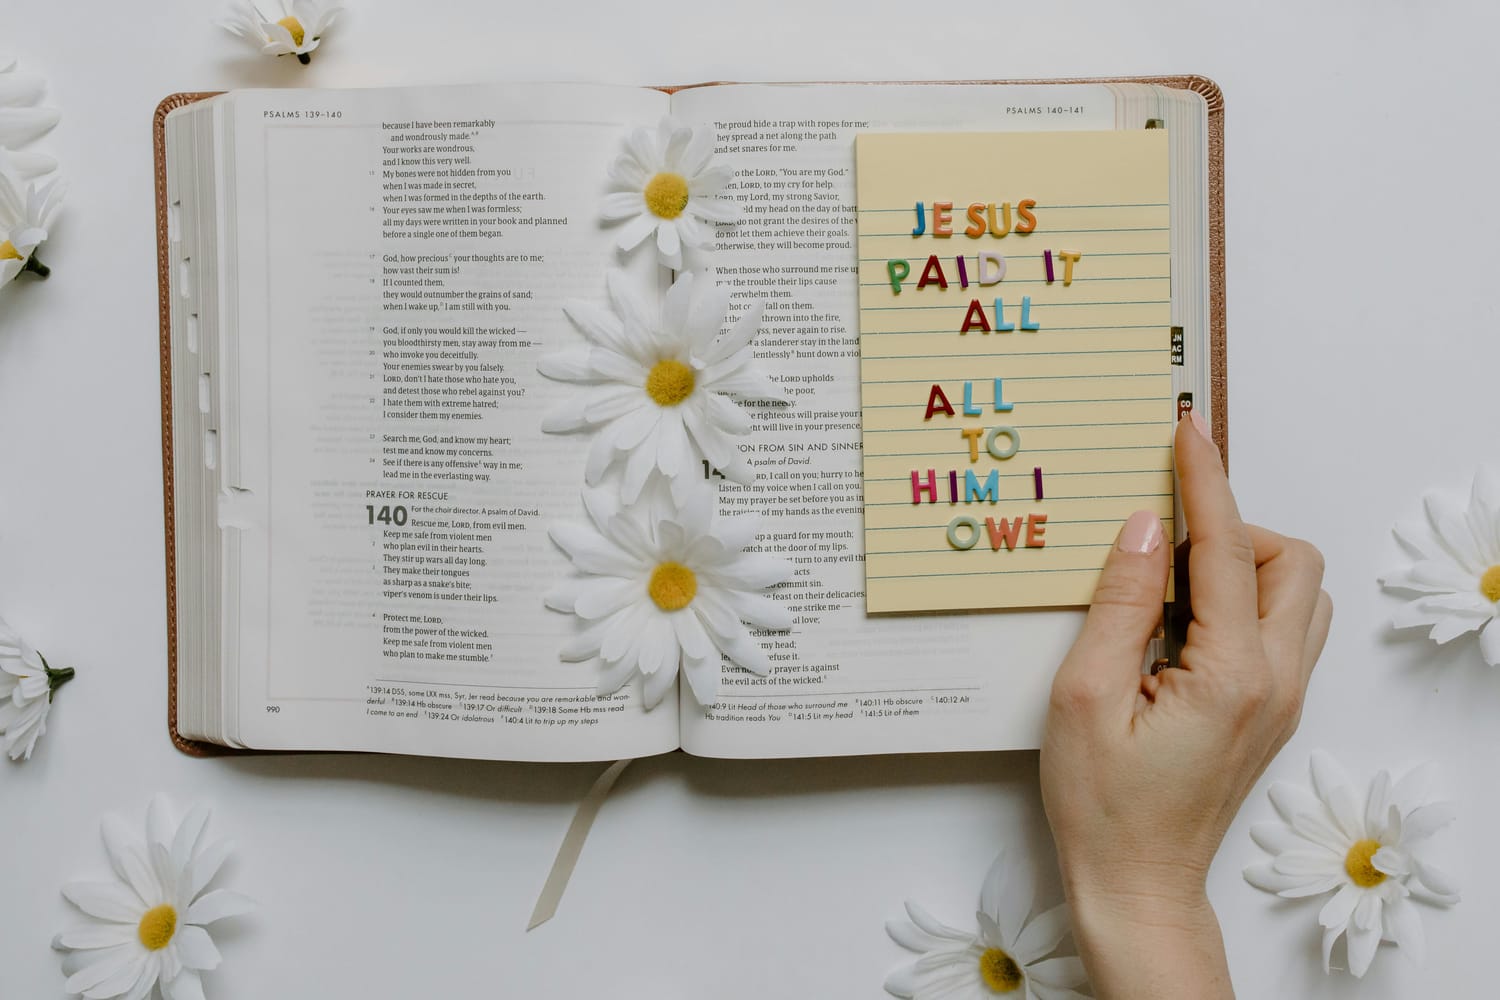 PSALMS 139–140
because I have been remarkably
and wondrously made.
Your works are wondrous,
and I know this very well.
15 My bones were not hidden from you
when I was made in secret,
when I was formed in the depths of the earth.
16 Your eyes saw me when I was formless;
all my days were written in your book and planned
before a single one of them began.
17 God, how precious your thoughts are to me;
how vast their sum is!
18 If I counted them,
they would outnumber the grains of sand;
when I wake up, I am still with you.
19 God, if only you would kill the wicked —
you bloodthirsty men, stay away from me —
20 who invoke you deceitfully.
Your enemies swear by you falsely.
21 LORD, don't I hate those who hate you,
and detest those who rebel against you?
22 I hate them with extreme hatred;
I consider them my enemies.
23 Search me, God, and know my heart;
test me and know my concerns.
24 See if there is any offensive way in me;
lead me in the everlasting way.
PRAYER FOR RESCUE
140 For the choir director. A psalm of David.
Rescue me, LORD, from evil men.
Keep me safe from violent men
2 who plan evil in their hearts.
They stir up wars all day long.
3 They make their tongues
as sharp as a snake's bite;
viper's venom is under their lips.
4 Protect me, LORD,
from the power of the wicked.
Keep me safe from violent men
who plan to make me stumble.
139:14 DSS, some LXX mss, Syr, Jer read because you are remarkable and won-
derful 139:14 Hb obscure 139:17 Or difficult 139:18 Some Hb mss read
I come to an end 139:24 Or idolatrous 140:4 Lit to trip up my steps
990
PSALMS 140–141
The proud hide a trap with ropes for me;
hey spread a net along the path
and set snares for me.
o the LORD, "You are my God."
en, LORD, to my cry for help.
LORD, my Lord, my strong Savior,
eld my head on the day of batt
LORD, do not grant the desires of the
do not let them achieve their goals.
Otherwise, they will become proud.
When those who surround me rise up
may the trouble their lips cause
verwhelm them.
hot co fall on them.
t the thrown into the fire,
yss, never again to rise.
t a slanderer stay in the land
lentlessly hunt down a viol
the LORD upholds
the poor,
ice for the needy.
e righteous will praise your
ht will live in your presence.
ION FROM SIN AND SINNER
14 A psalm of David.
RD, I call on you; hurry to he
Listen to my voice when I call on you.
May my prayer be set before you as in
the raising of my hands as the evening
up a guard for my mouth;
watch at the door of my lips.
t turn to any evil thi
acts
commit sin.
e feast on their delicacies.
one strike me —
al love;
rebuke me —
my head;
le efuse it.
Even my prayer is against
the evil acts of the wicked.
140:9 Lit Head of those who surround me 140:11 Hb obscure 140:12 Alt
Hb tradition reads You 141:5 Lit my head 141:5 Lit of them
JESUS
PAID IT
ALL
ALL
TO
HIM I
OWE
JN
AC
RM
CO